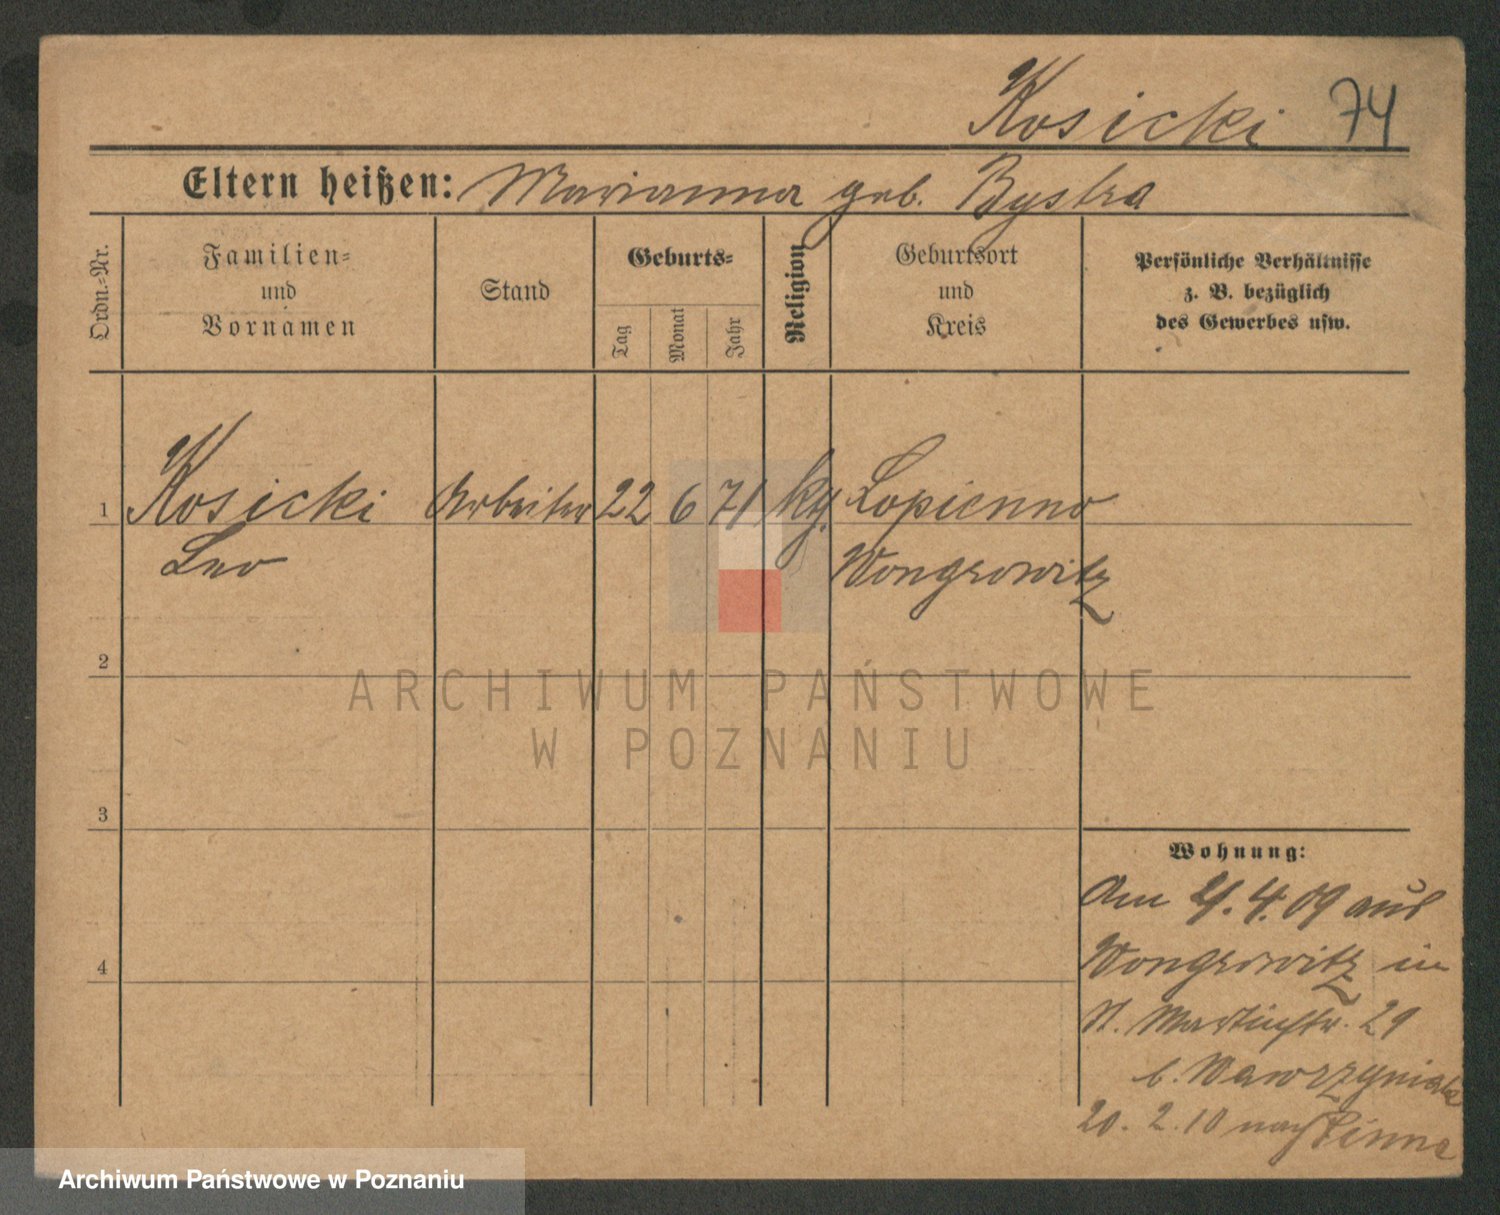 Kosicki 74
Eltern heißen: Marianna geb. Bystra
Ordn.-Nr.
Familien-
und
Vornamen
Stand
Geburts-
Tag
Monat
Jahr
Religion
Geburtsort
und
Kreis
Persönliche Verhältnisse
z. B. bezüglich
des Gewerbes usw.
1 Kosicki Arbeiter 22 6 71 kth. Lopienno
Leo Wongrowitz
2
3
4
Wohnung:
Am 4.09 aus
Wongrowitz in
St. Martinstr. 29
b. Wawrzyniak
20. 2. 10 nach Pinne
ARCHIWUM PAŃSTWOWE
W POZNANIU
Archiwum Państwowe w Poznaniu